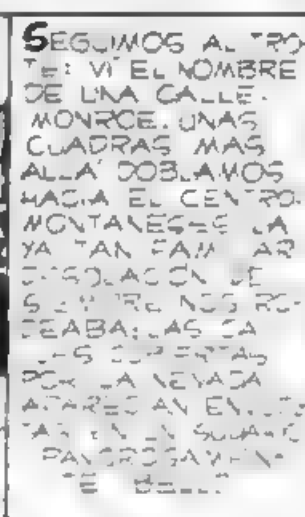 SEGUIMOS AL TRO-
TE: VI EL NOMBRE
DE UNA CALLE.
MONROE. UNAS
CUADRAS MAS
ALLA DOBLAMOS
HACIA EL CENTRO.
LA
YA TAN FAMILIAR
DESOLACION DE
SIEMPRE NOS RO-
DEABA: LAS CA
LLES CUBIERTAS
POR LA NEVADA
APARECIAN
EN UN SUDARIO